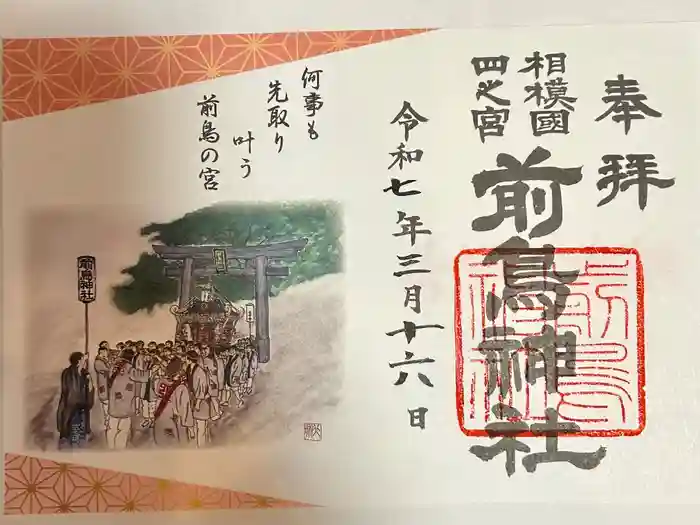 奉拝
相模國
四之宮
前鳥神社
令和七年三月十六日
何事も
先取り
叶う
前鳥の宮
前鳥神社
前鳥
神社